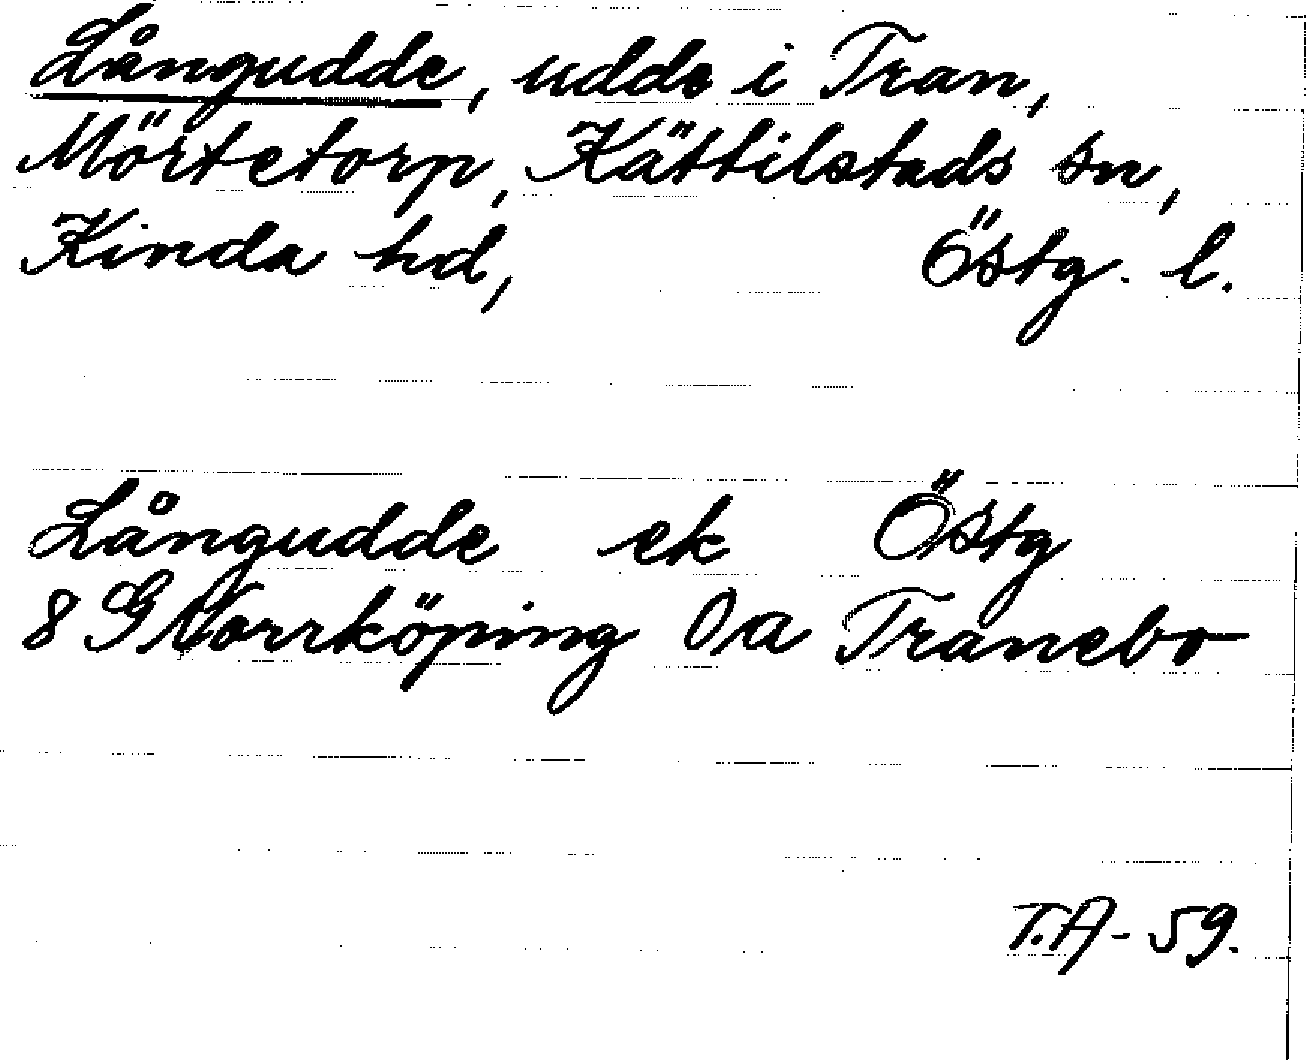 Långudde, udde i Tran,
Mörtetorp, Kättilstads sn,
Kinda hd, Östg. l.
Långudde ek Östg
8 G Norrköping 0a Tranebo
T.A-59.